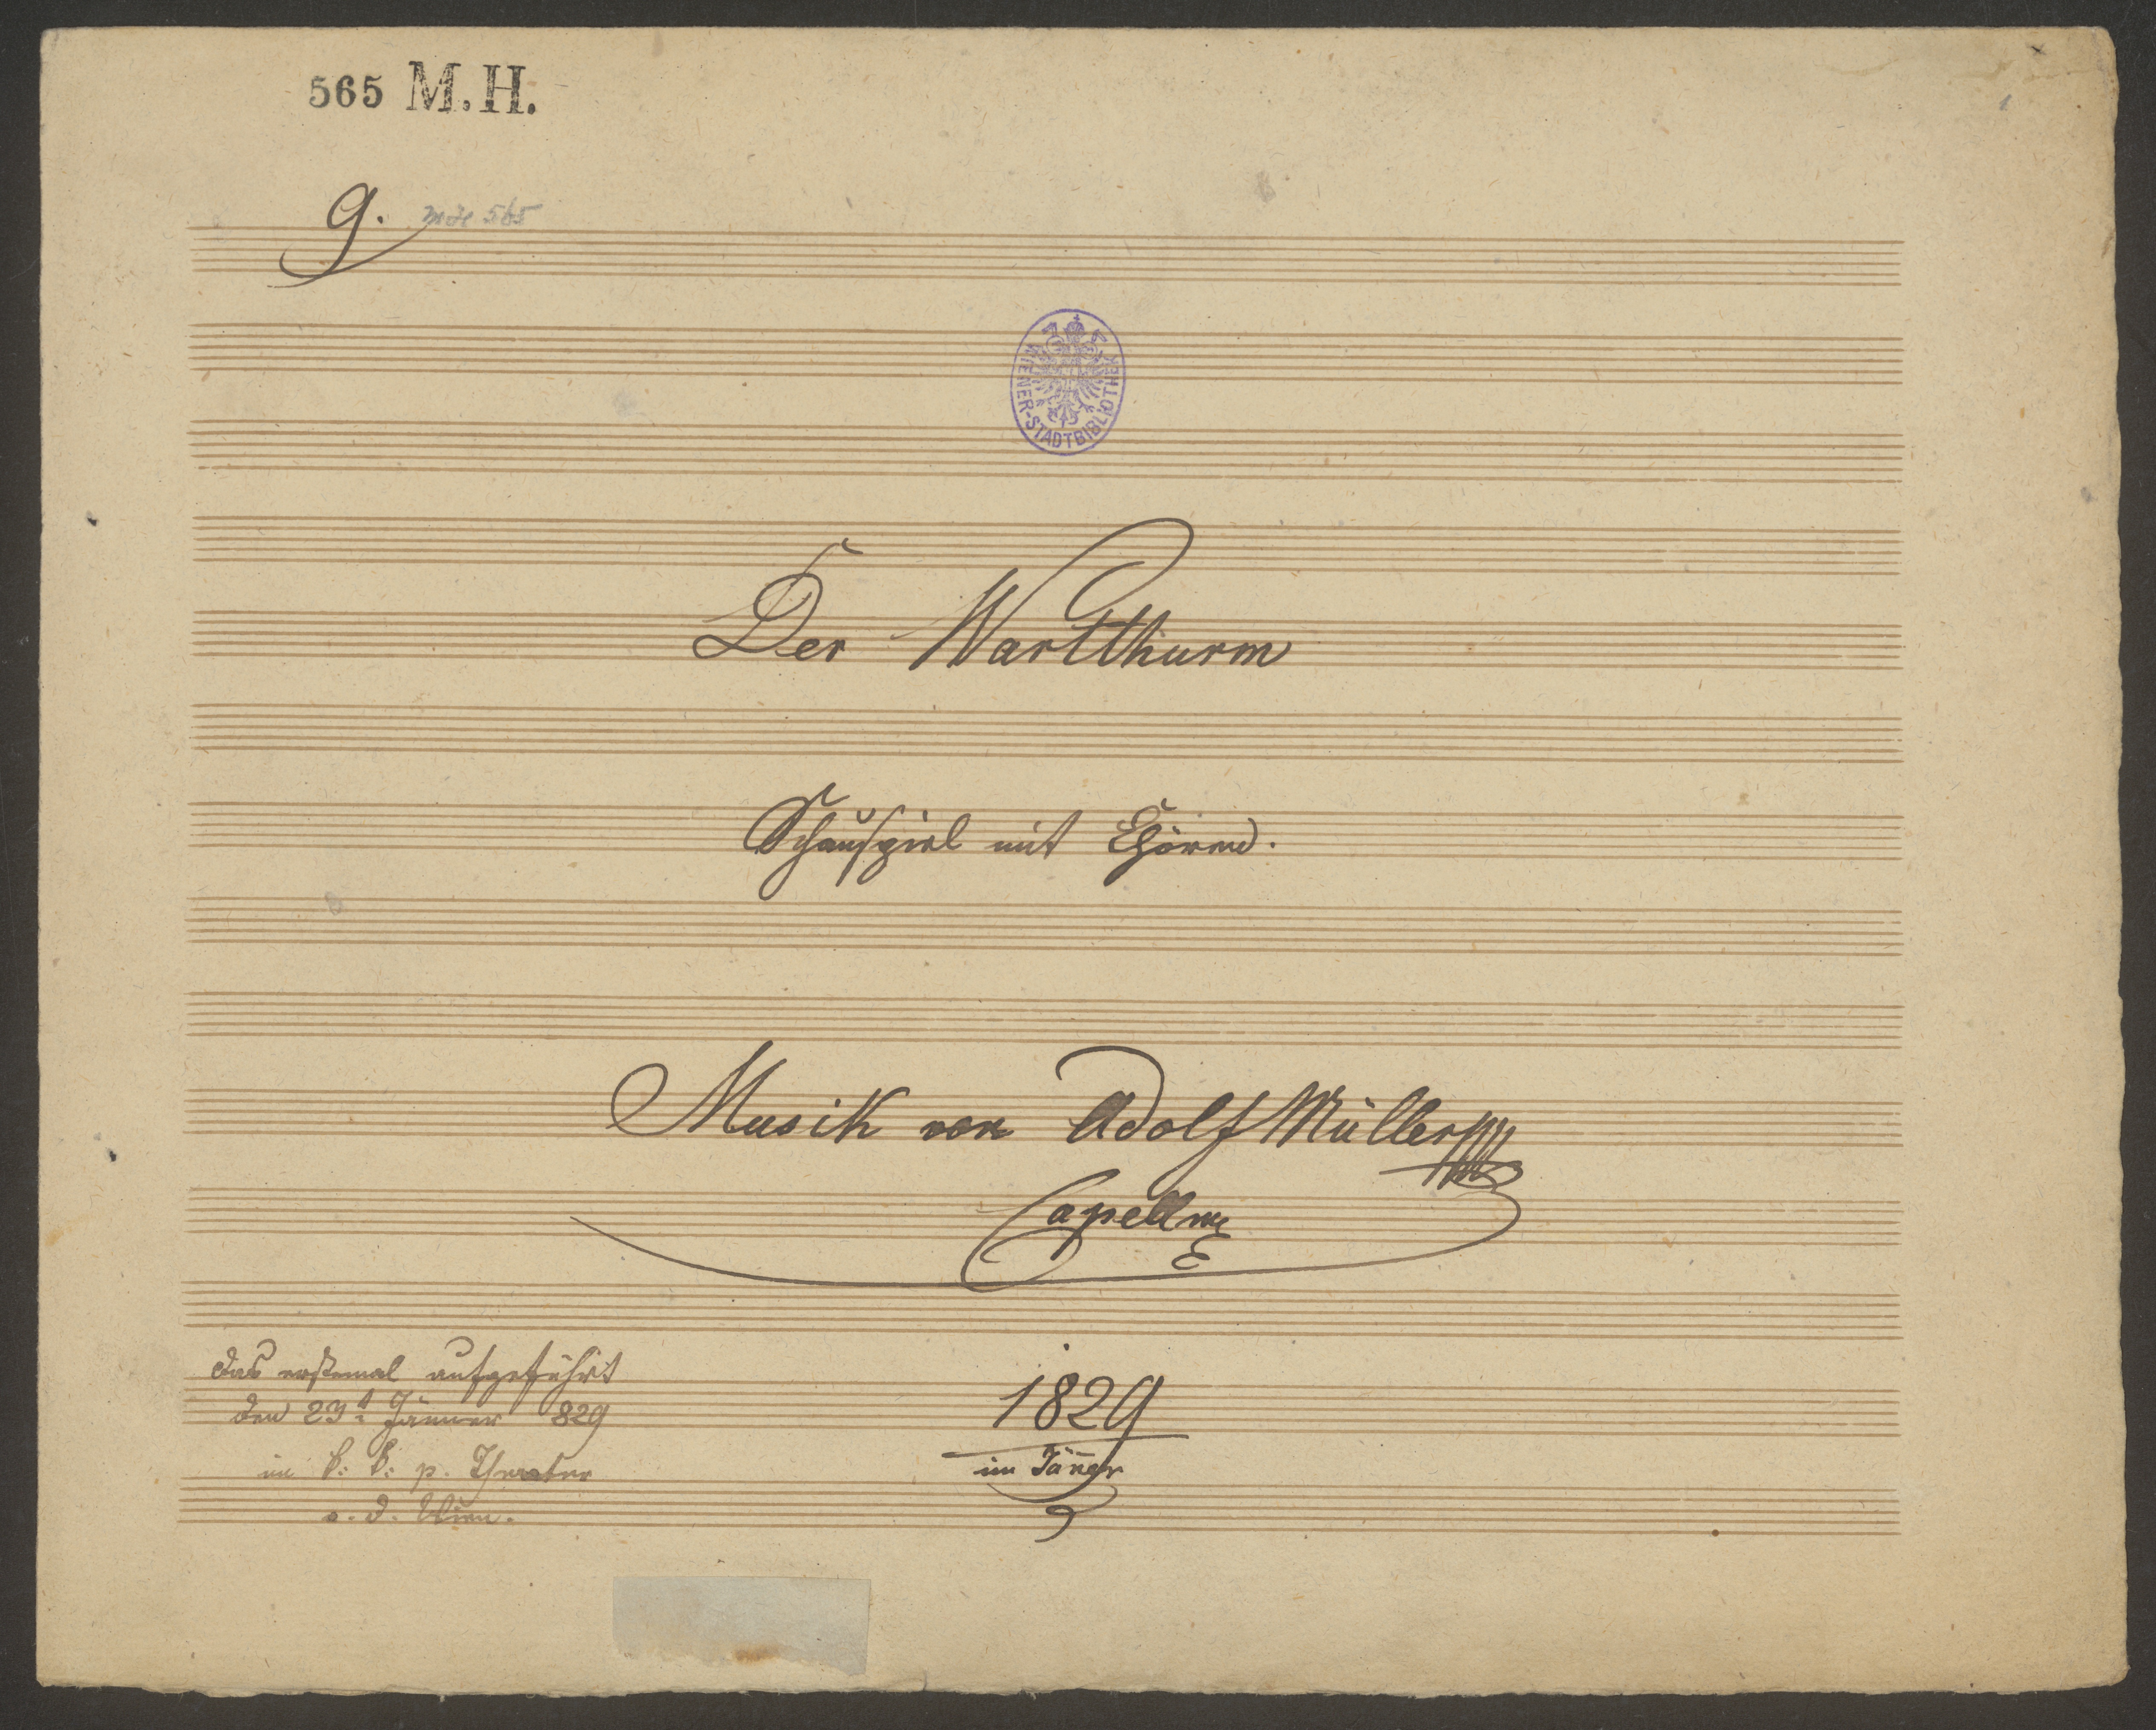 565 M.H.
1
9. MH 565
WIENER-STADTBIBLIOTHEK
Der Wartthurm
Schauspiel mit Chören.
Musik von Adolf Müller
Capellm
das erstemal aufgeführt
den 23t Jänner 829
im k: k: p. Theater
a. d. Wien.
1829
im Jäner